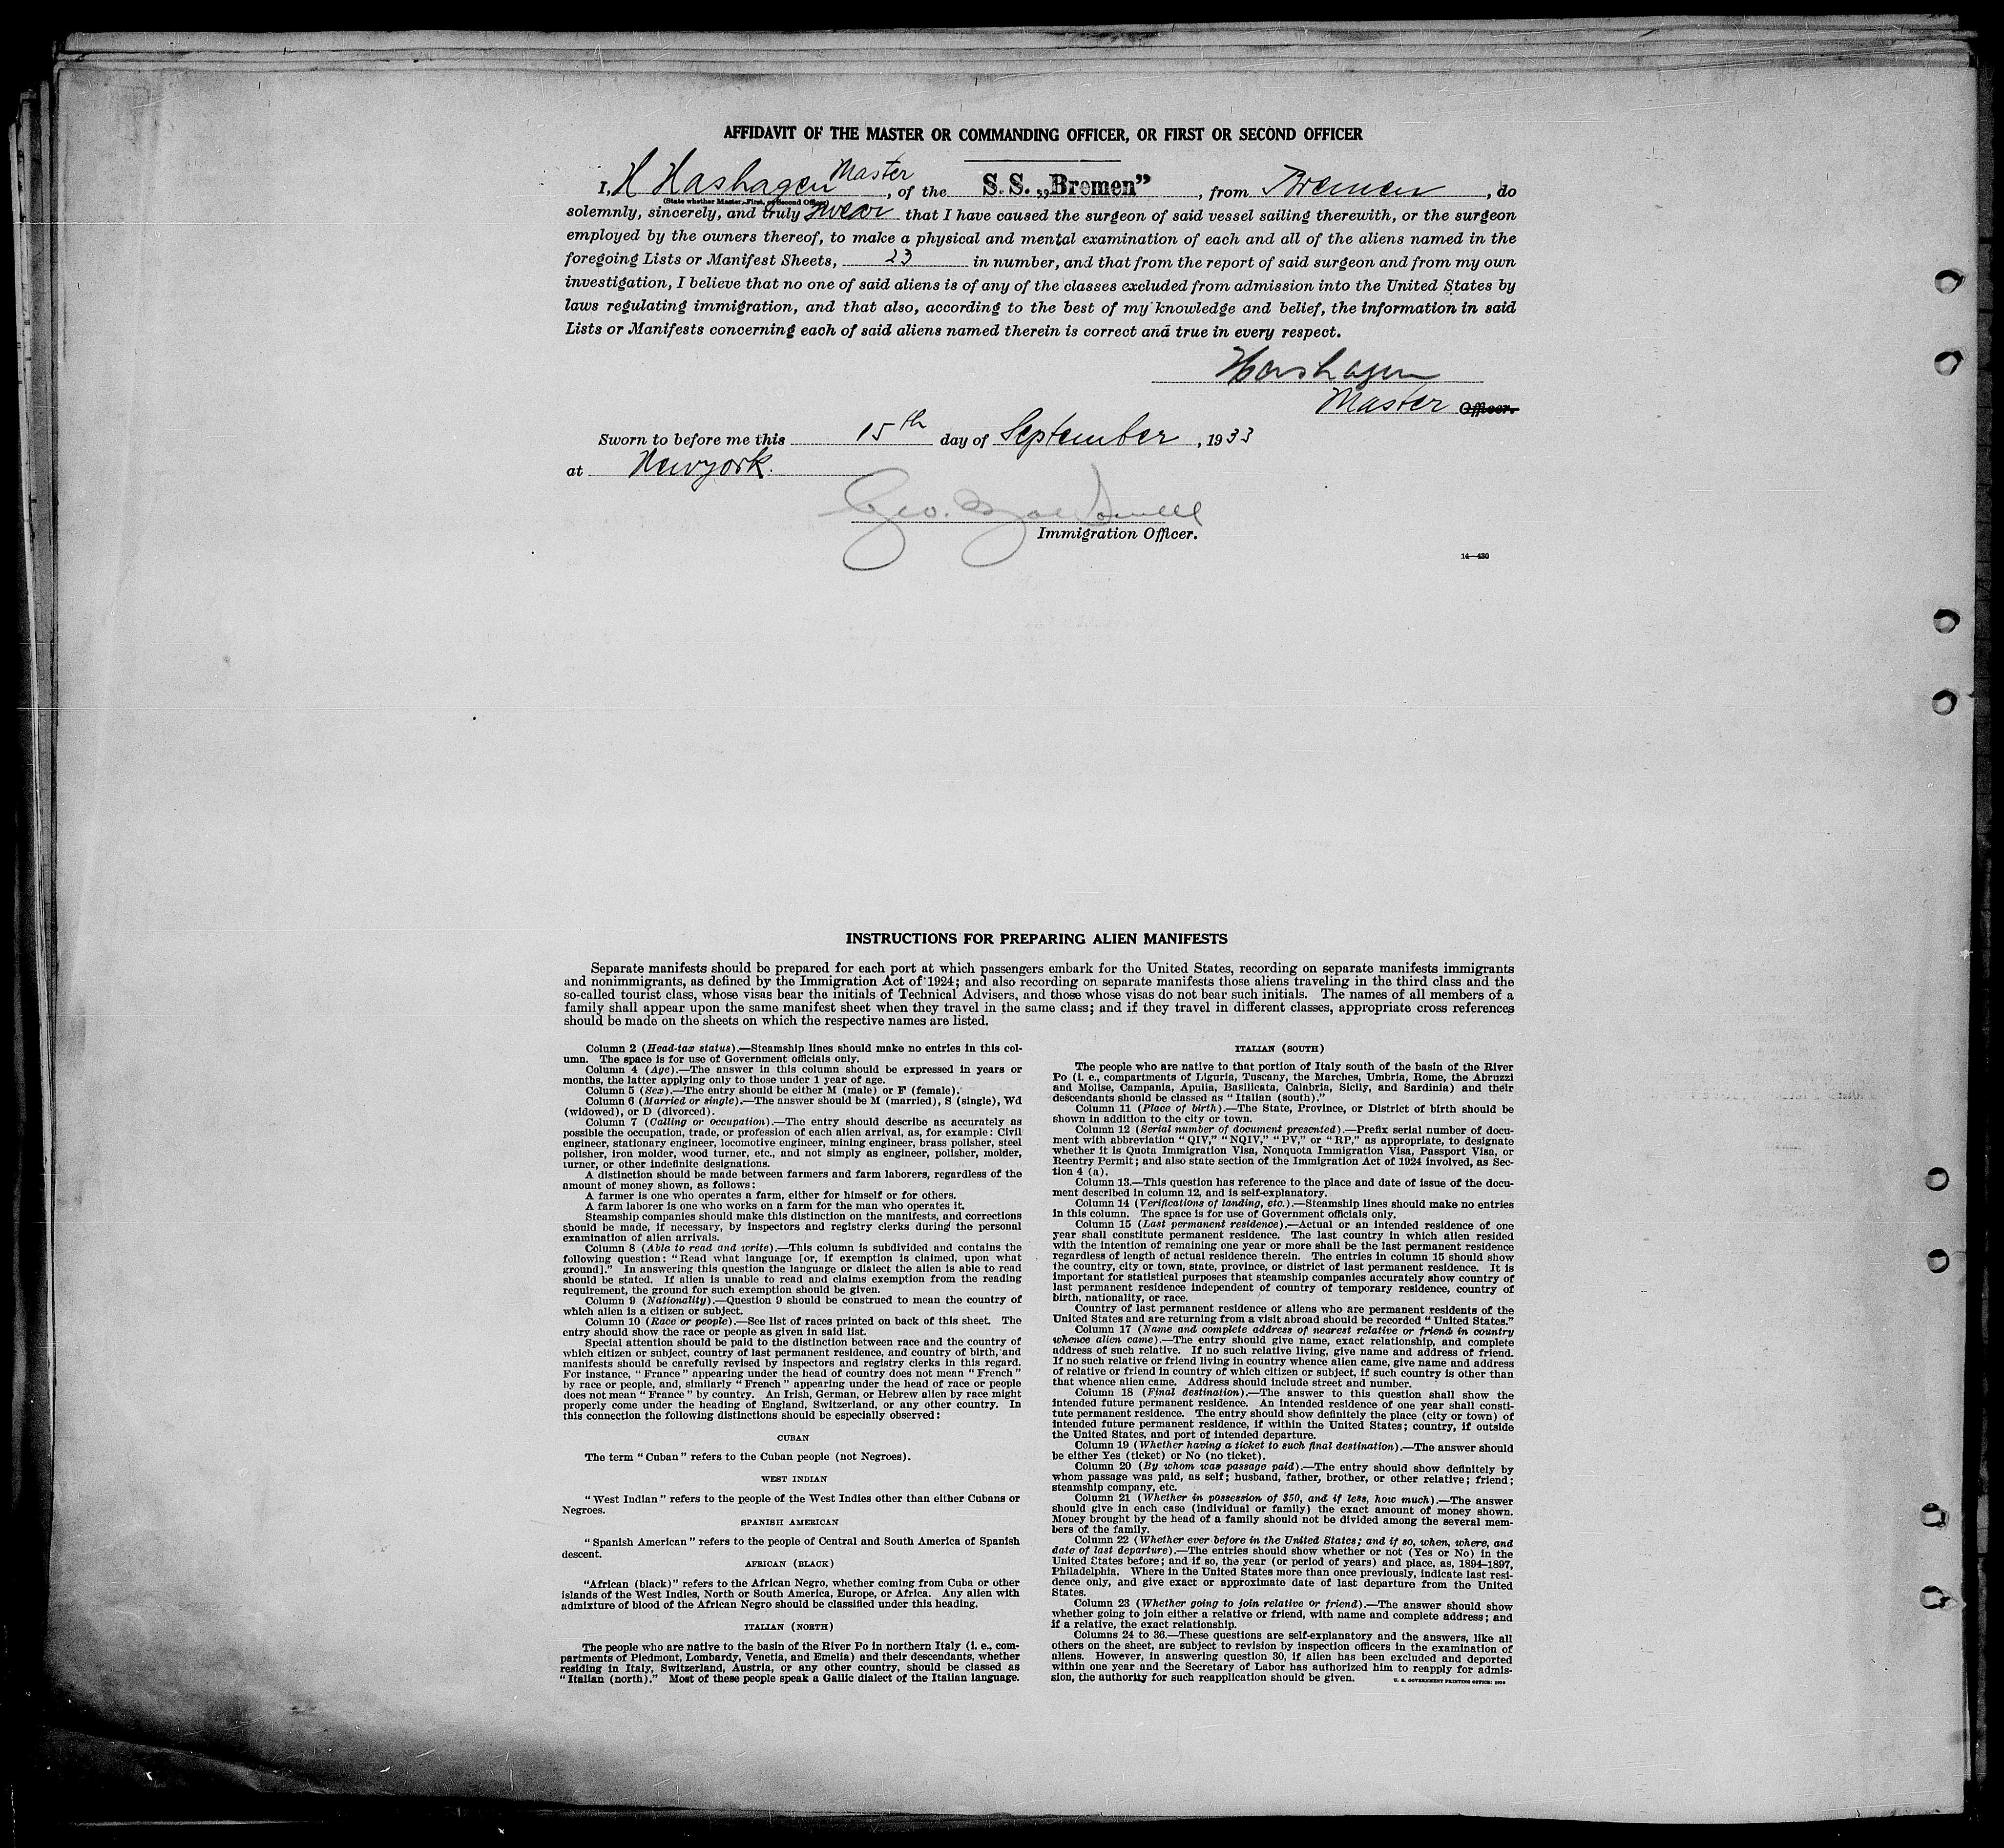 AFFIDAVIT OF THE MASTER OR COMMANDING OFFICER, OR FIRST OR SECOND OFFICER
I, H Hashagen Master, of the S. S. „Bremen”, from Bremen, do
(State whether Master, First, or Second Officer)
solemnly, sincerely, and truly swear that I have caused the surgeon of said vessel sailing therewith, or the surgeon
employed by the owners thereof, to make a physical and mental examination of each and all of the aliens named in the
foregoing Lists or Manifest Sheets, 23 in number, and that from the report of said surgeon and from my own
investigation, I believe that no one of said aliens is of any of the classes excluded from admission into the United States by
laws regulating immigration, and that also, according to the best of my knowledge and belief, the information in said
Lists or Manifests concerning each of said aliens named therein is correct and true in every respect.
Hashagen
Master Officer.
Sworn to before me this 15th day of September, 1933
at Newyork.
Geo.
Immigration Officer.
14—430
INSTRUCTIONS FOR PREPARING ALIEN MANIFESTS
Separate manifests should be prepared for each port at which passengers embark for the United States, recording on separate manifests immigrants
and nonimmigrants, as defined by the Immigration Act of 1924; and also recording on separate manifests those aliens traveling in the third class and the
so-called tourist class, whose visas bear the initials of Technical Advisers, and those whose visas do not bear such initials. The names of all members of a
family shall appear upon the same manifest sheet when they travel in the same class; and if they travel in different classes, appropriate cross references
should be made on the sheets on which the respective names are listed.
Column 2 (Head-tax status).—Steamship lines should make no entries in this col-
umn. The space is for use of Government officials only.
Column 4 (Age).—The answer in this column should be expressed in years or
months, the latter applying only to those under 1 year of age.
Column 5 (Sex).—The entry should be either M (male) or F (female).
Column 6 (Married or single).—The answer should be M (married), S (single), Wd
(widowed), or D (divorced).
Column 7 (Calling or occupation).—The entry should describe as accurately as
possible the occupation, trade, or profession of each alien arrival, as, for example: Civil
engineer, stationary engineer, locomotive engineer, mining engineer, brass polisher, steel
polisher, iron molder, wood turner, etc., and not simply as engineer, polisher, molder,
turner, or other indefinite designations.
A distinction should be made between farmers and farm laborers, regardless of the
amount of money shown, as follows:
A farmer is one who operates a farm, either for himself or for others.
A farm laborer is one who works on a farm for the man who operates it.
Steamship companies should make this distinction on the manifests, and corrections
should be made, if necessary, by inspectors and registry clerks during the personal
examination of alien arrivals.
Column 8 (Able to read and write).—This column is subdivided and contains the
following question: “Read what language [or, if exemption is claimed, upon what
ground].” In answering this question the language or dialect the alien is able to read
should be stated. If alien is unable to read and claims exemption from the reading
requirement, the ground for such exemption should be given.
Column 9 (Nationality).—Question 9 should be construed to mean the country of
which alien is a citizen or subject.
Column 10 (Race or people).—See list of races printed on back of this sheet. The
entry should show the race or people as given in said list.
Special attention should be paid to the distinction between race and the country of
which citizen or subject, country of last permanent residence, and country of birth, and
manifests should be carefully revised by inspectors and registry clerks in this regard.
For instance, “France” appearing under the head of country does not mean “French”
by race or people, and, similarly “French” appearing under the head of race or people
does not mean “France” by country. An Irish, German, or Hebrew alien by race might
properly come under the heading of England, Switzerland, or any other country. In
this connection the following distinctions should be especially observed:
CUBAN
The term “Cuban” refers to the Cuban people (not Negroes).
WEST INDIAN
“West Indian” refers to the people of the West Indies other than either Cubans or
Negroes.
SPANISH AMERICAN
“Spanish American” refers to the people of Central and South America of Spanish
descent.
AFRICAN (BLACK)
“African (black)” refers to the African Negro, whether coming from Cuba or other
islands of the West Indies, North or South America, Europe, or Africa. Any alien with
admixture of blood of the African Negro should be classified under this heading.
ITALIAN (NORTH)
The people who are native to the basin of the River Po in northern Italy (i. e., com-
partments of Piedmont, Lombardy, Venetia, and Emelia) and their descendants, whether
residing in Italy, Switzerland, Austria, or any other country, should be classed as
“Italian (north).” Most of these people speak a Gallic dialect of the Italian language.
ITALIAN (SOUTH)
The people who are native to that portion of Italy south of the basin of the River
Po (i. e., compartments of Liguria, Tuscany, the Marches, Umbria, Rome, the Abruzzi
and Molise, Campania, Apulia, Basilicata, Calabria, Sicily, and Sardinia) and their
descendants should be classed as “Italian (south).”
Column 11 (Place of birth).—The State, Province, or District of birth should be
shown in addition to the city or town.
Column 12 (Serial number of document presented).—Prefix serial number of docu-
ment with abbreviation “QIV,” “NQIV,” “PV,” or “RP,” as appropriate, to designate
whether it is Quota Immigration Visa, Nonquota Immigration Visa, Passport Visa, or
Reentry Permit; and also state section of the Immigration Act of 1924 involved, as Sec-
tion 4 (a).
Column 13.—This question has reference to the place and date of issue of the docu-
ment described in column 12, and is self-explanatory.
Column 14 (Verifications of landing, etc.).—Steamship lines should make no entries
in this column. The space is for use of Government officials only.
Column 15 (Last permanent residence).—Actual or an intended residence of one
year shall constitute permanent residence. The last country in which alien resided
with the intention of remaining one year or more shall be the last permanent residence
regardless of length of actual residence therein. The entries in column 15 should show
the country, city or town, state, province, or district of last permanent residence. It is
important for statistical purposes that steamship companies accurately show country of
last permanent residence independent of country of temporary residence, country of
birth, nationality, or race.
Country of last permanent residence of aliens who are permanent residents of the
United States and are returning from a visit abroad should be recorded “United States.”
Column 17 (Name and complete address of nearest relative or friend in country
whence alien came).—The entry should give name, exact relationship, and complete
address of such relative. If no such relative living, give name and address of friend.
If no such relative or friend living in country whence alien came, give name and address
of relative or friend in country of which citizen or subject, if such country is other than
that whence alien came. Address should include street and number.
Column 18 (Final destination).—The answer to this question shall show the
intended future permanent residence. An intended residence of one year shall consti-
tute permanent residence. The entry should show definitely the place (city or town) of
intended future permanent residence, if within the United States; country, if outside
the United States, and port of intended departure.
Column 19 (Whether having a ticket to such final destination).—The answer should
be either Yes (ticket) or No (no ticket).
Column 20 (By whom was passage paid).—The entry should show definitely by
whom passage was paid, as self; husband, father, brother, or other relative; friend;
steamship company, etc.
Column 21 (Whether in possession of $50, and if less, how much).—The answer
should give in each case (individual or family) the exact amount of money shown.
Money brought by the head of a family should not be divided among the several mem-
bers of the family.
Column 22 (Whether ever before in the United States; and if so, when, where, and
date of last departure).—The entries should show whether or not (Yes or No) in the
United States before; and if so, the year (or period of years) and place, as, 1894–1897,
Philadelphia. Where in the United States more than once previously, indicate last resi-
dence only, and give exact or approximate date of last departure from the United
States.
Column 23 (Whether going to join relative or friend).—The answer should show
whether going to join either a relative or friend, with name and complete address; and
if a relative, the exact relationship.
Columns 24 to 36.—These questions are self-explanatory and the answers, like all
others on the sheet, are subject to revision by inspection officers in the examination of
aliens. However, in answering question 30, if alien has been excluded and deported
within one year and the Secretary of Labor has authorized him to reapply for admis-
sion, the authority for such reapplication should be given.
U. S. GOVERNMENT PRINTING OFFICE: